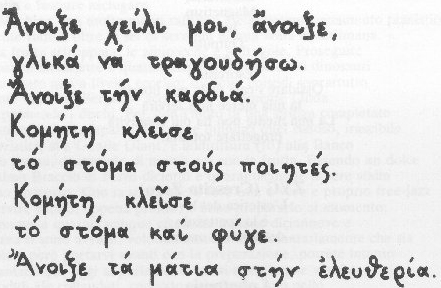 Ἄνοιξε χείλι μοι, ἄνοιξε,
γλικά νά τραγουδήσω.
Ἄνοιξε τήν καρδιά.
Κομήτη κλεῖσε
τό στόμα στούς ποιητές.
Κομήτη κλεῖσε
τό στόμα καί φύγε.
Ἄνοιξε τά μάτια στήν ἐλευθερία.